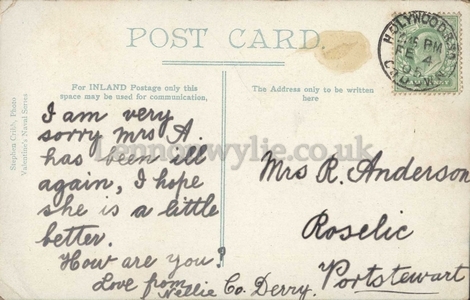 POST CARD.
For INLAND Postage only this
space may be used for communication.
The Address only to be written
here
Stephen Cribb, Photo
Valentine's Naval Series
HOLYWOOD
PM
4
CO. DOWN
I am very
sorry Mrs A.
has been ill
again, I hope
she is a little
better.
How are you?
Love from
Nellie
Mrs R. Anderson
Roselic
Portstewart
Co. Derry.
Lennonwylie.co.uk